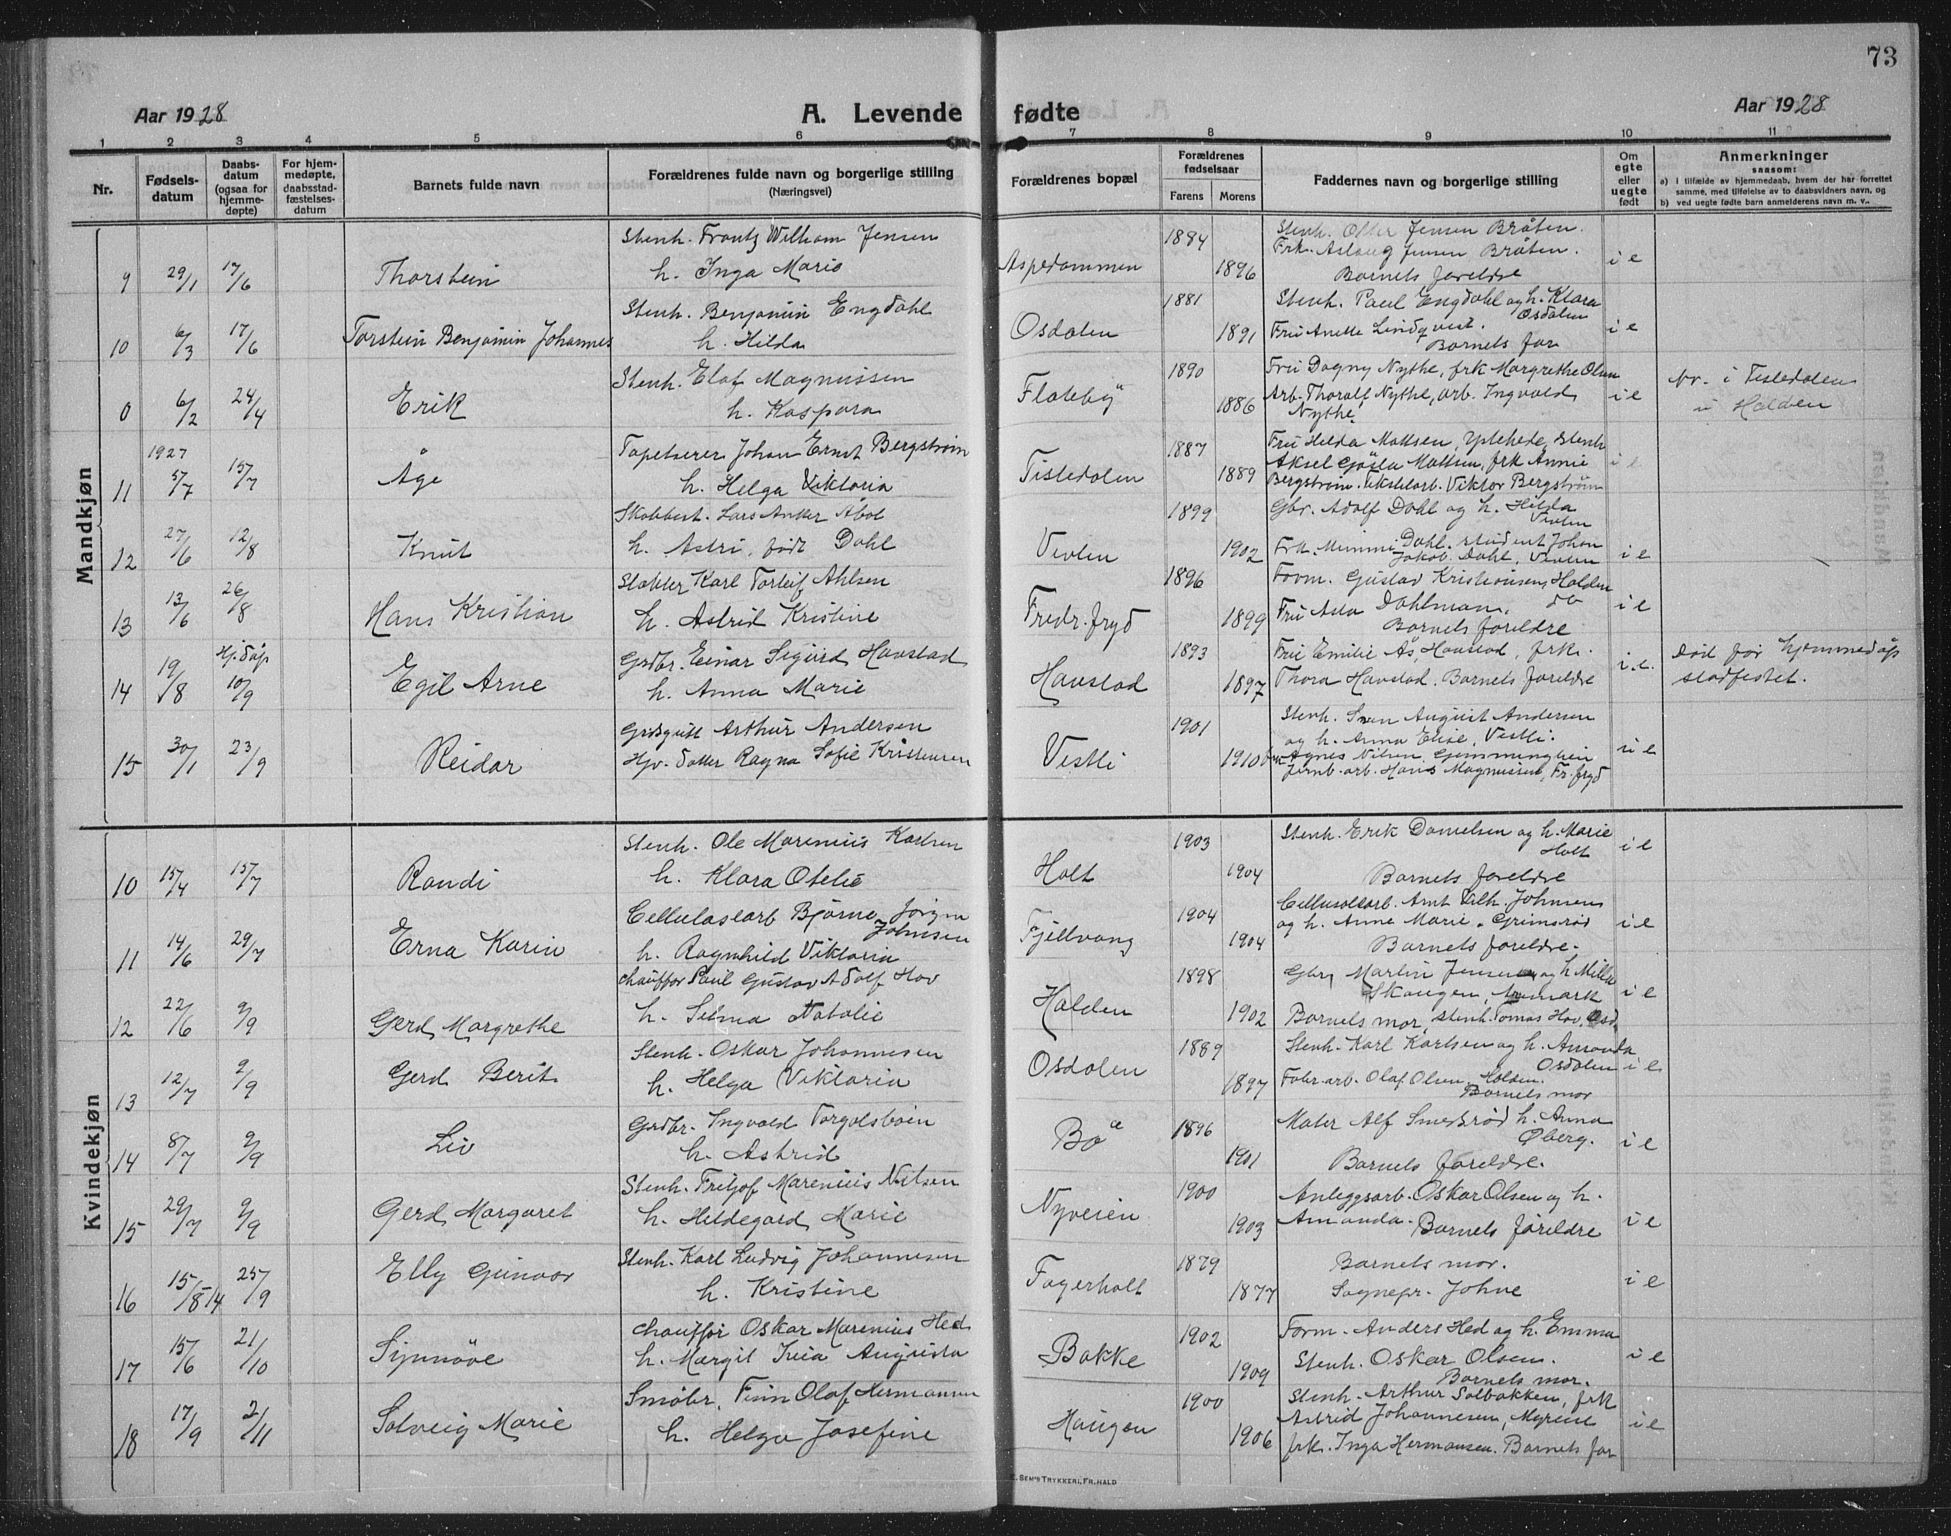 73
Aar 1928
A. Levende fødte
Aar 1928
1 2 3 4 5 6 7 8 9 10 11
Nr.
Fødsels-
datum
Daabs-
datum
(ogsaa for
hjemme-
døpte)
For hjem-
medøpte,
daabsstad-
fæstelses-
datum
Barnets fulde navn
Forældrenes fulde navn og borgerlige stilling
(Næringsvei)
Forældrenes bopæl
Forældrenes
fødselsaar
Farens
Morens
Faddernes navn og borgerlige stilling
Om
egte
eller
uegte
født
Anmerkninger
saasom:
a) i tilfælde av hjemmedaab, hvem der har forrettet
samme, med tilføielse av to daabsvidners navn, og
b) ved uegte fødte barn anmelderens navn m. v.
Mandkjøn
9 29/1 17/6 Thorstein
Stenh. Frantz Wilham Jensen
h. Inga Marie
Aspedammen 1894 1896
Stenh. Jensen Bråten.
Frk. Aslaug Jensen Bråten.
Barnets foreldre
i e
10 6/3 17/6 Torstein Benjamin Johannes
Stenh. Benjamin Engdahl
h. Hilda
Osdalen 1881 1891
Stenh. Paul Engdahl og h. Klara
Osdalen
Fru Anette Lindqvist.
Barnets far
i e
0 6/2 24/4 Erik
Stenh. Elof Magnussen
h. Kaspara
Flateby 1890 1886
Fru Dagny Nythe, frk Margrethe Olsen
Arb. Thoralf Nythe, arb. Ingvald
Nythe
i e
nr. i Tistedalen
i Halden
11 1927 5/7 15/7 Åge
Tapetserer Johan Ernst Bergstrøm
h. Helga Viktoria
Tistedalen 1887 1889
Fru Hilda Mattsen, Ystehede, Stenh
Aksel Gøsta Mattsen, frk Annie
Bergstrøm. Tekstilarb. Viktor Bergstrøm
i e
12 27/6 12/8 Knut
Skobbest. Lars Anker Åbol
h. Astri, født Dahl
Vevlen 1899 1902
Gbr. Adolf Dahl og h. Hilda
Vevlen
Frk. Mimmi Dahl. student Johan
Jakob Dahl, Vevlen
i e
13 13/6 26/8 Hans Kristian
Stabler Karl Torleif Ahlsen
h. Astrid Kristine
Fredr.fryd 1896 1899
Form. Gustav Kristiansen, Halden
Fru Asta Dahlman, do
Barnets foreldre
i e
14 19/8 Hj.dåp 10/9 Egil Arne
Grdbr. Einar Sigurd Havstad
h. Anna Marie
Havstad 1893 1897
Fru Emilie Ås, Havstad, frk.
Thora Havstad. Barnets foreldre
i.e.
død før hjemmedåp
stadfestet.
15 30/1 23/9 Reidar
Grdsgutt Arthur Andersen
Hjv. datter Ragna Sofie Kristensen
Vestli 1901 1910
Stenh. Sven August Andersen
og h. Anna Elise, Vestli.
Agnes Nilsen Gjemmenghein
Jernb.arb. Hans Magnussen, Fr.fryd
u e
Kvindekjøn
10 15/4 15/7 Randi
Stenh. Ole Marenius Karlsen
h. Klara Otelie
Holt 1903 1904
Stenh. Erik Danielsen og h. Marie
Holt
Barnets foreldre
i e
11 14/6 29/7 Erna Karin
Cellulosearb Bjarne Jørgen
Johnsen
h. Ragnhild Viktoria
Fjellvang 1904 1904
Cellulosearb. Arnt Vilh Johnsen
og h. Anne Marie. Grimsrød
Barnets foreldre.
i e
12 22/6 9/9 Gerd Margrethe
Chauffør Paul Gustav Adolf Hov
h. Selma Natalie
Halden 1898 1902
Gbr Martin Jensen og h Milla
Skaugen, Aremark
Barnets mor, stenh. Tomas Hov, Osd
i e
13 12/7 9/9 Gerd Berit
Stenh. Oskar Johannesen
h. Helga Viktoria
Osdalen 1889 1897
Stenh. Karl Karlsen og h. Amanda
Osdalen
Fabr.arb. Olaf Olsen, Halden.
Barnets mor
i e
14 8/7 9/9 Liv
Grdbr. Ingvald Torgalsbøen
h. Astrid
Bø 1896 1901
Maler Alf Smedsrød h. Anna
Øberg.
Barnets foreldre.
i e
15 29/7 9/9 Gerd Margaret
Stenh. Fritjof Marenius Nilsen
h. Hildegard Marie
Nyveien 1900 1903
Anleggsarb. Oskar Olsen og h.
Amanda. Barnets foreldre
i e
16 15/8 14 25/9 Elly Gunvor
Stenh. Karl Ludvig Johannesen
h. Kristine
Fagerholt 1879 1877
Barnets mor.
Sognepr. Johne
i e
17 15/6 21/10 Synnøve
Chauffør Oskar Marenius Hed
h. Margit Augusta
Bakke 1902 1909
Form. Anders Hed og h. Emma
Stenh. Oskar Olsen.
Barnets mor.
i e
18 17/9 2/11 Solveig Marie
Småbr. Finn Olaf Hermansen
h. Helga Josefine
Haugen 1900 1906
Stenh. Arthur Solbakken, frk
Astrid Johannesen, Myrene
frk. Inga Hermansen. Barnets far
i e
E. Sem's Trykkeri, Fr.hald